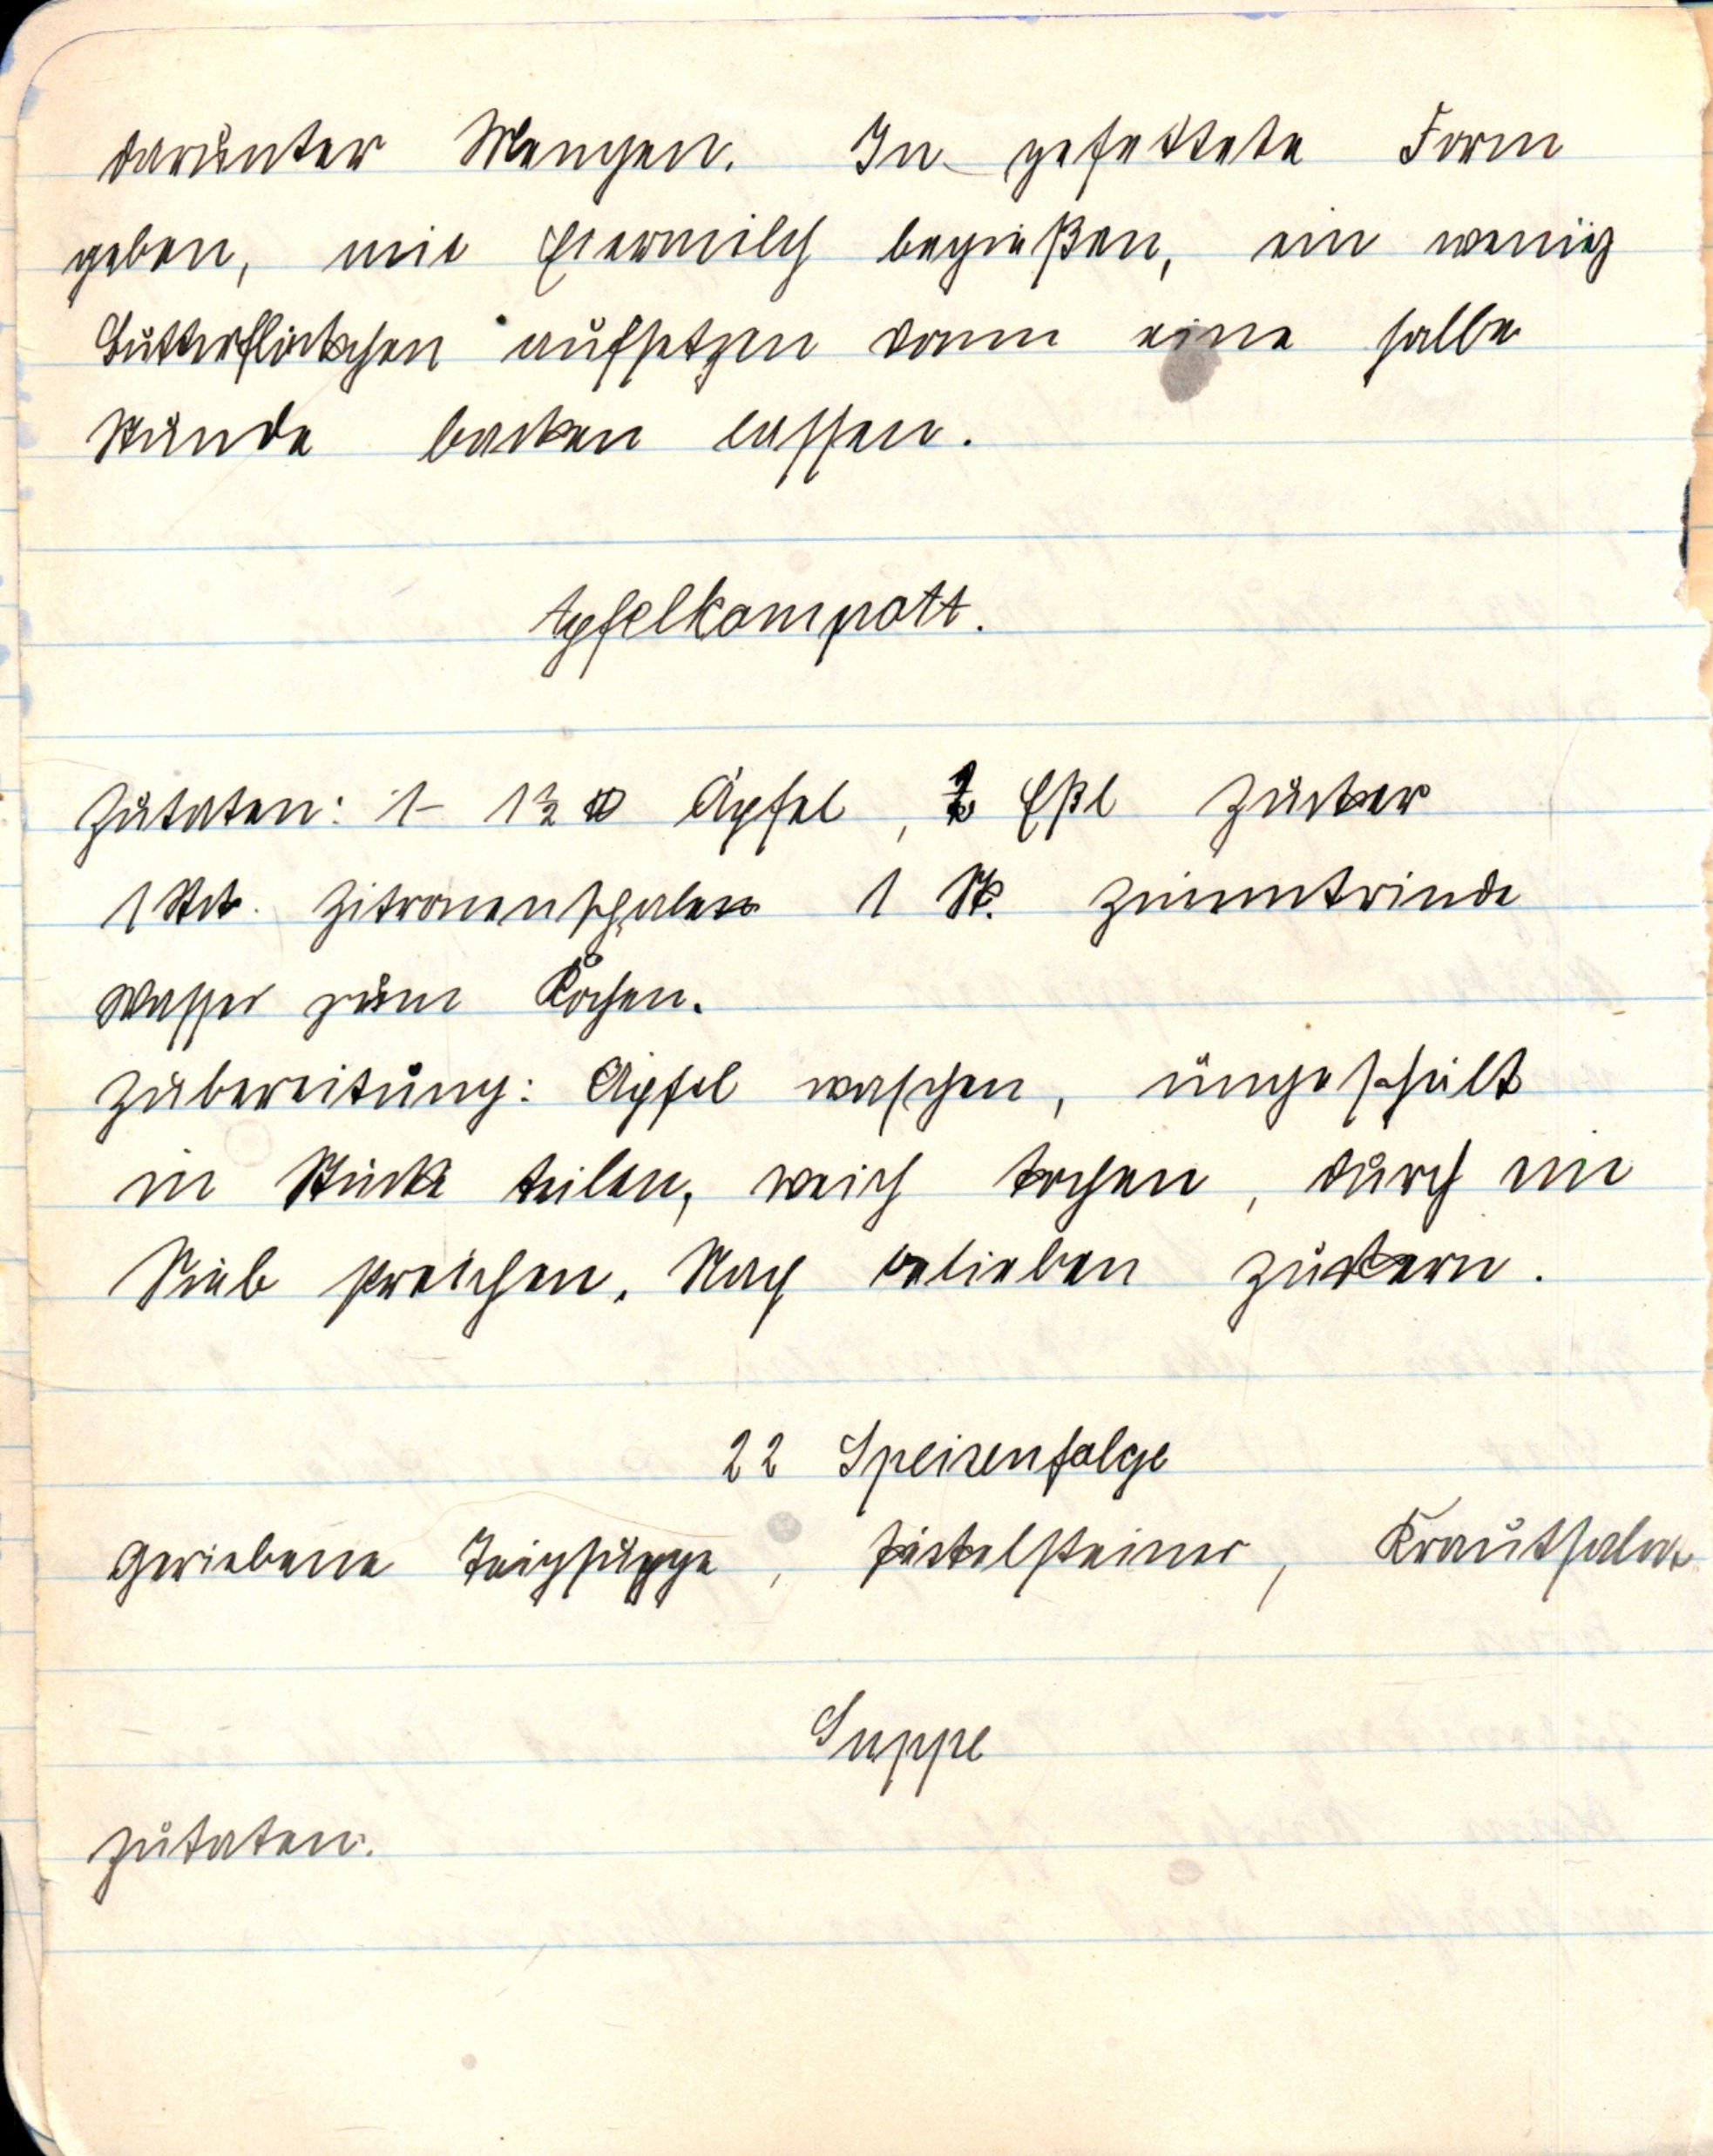 darunter Mengen. In gefettete Form
geben, mit Eiermilch begießen, ein wenig
Butterflöckchen aufsetzen dann eine halbe
Stunde backen lassen.
Apfelkompott.
Zutaten: 1- 1½ ℔ Äpfel, Eßl Zucker
1 Stck. Zitronenschalen 1 St. Zimmtrinde
Wasser zum Kochen.
Zubereitung: Äpfel waschen, ungeschält
in Stücke teilen, weich kochen, durch ein
Sieb streichen. Nach belieben zuckern.
22 Speisenfolge
Geriebene Teigsuppe, Pickelsteiner, Krautsalat
Suppe
Zutaten: